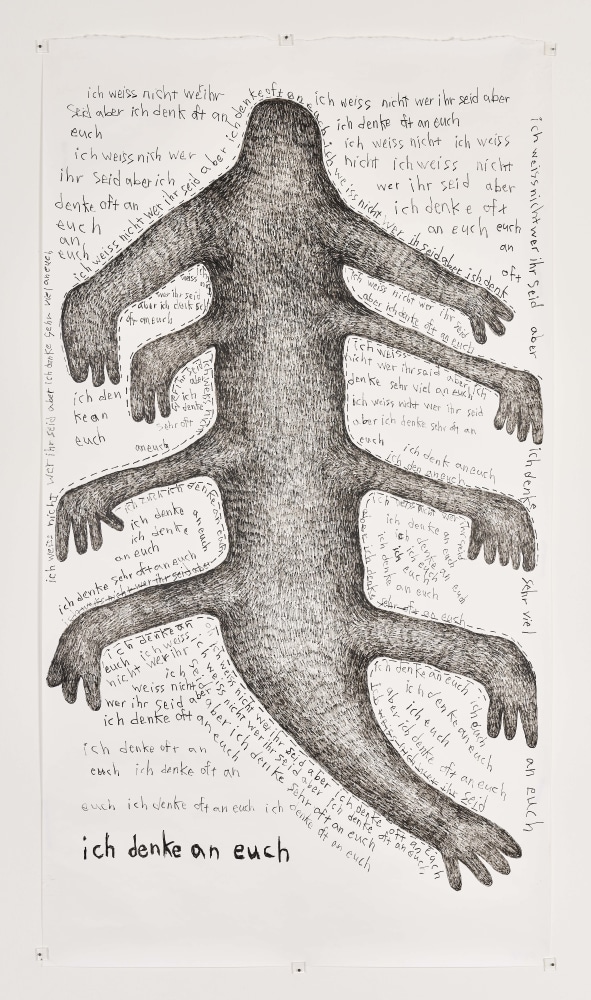 ich weiss nicht weihr
seid aber ich denk oft an
euch
ich weiss nish wer
ihr seid aber ich
denke oft an
euch
an
euch
ich weiss nicht wer ihr seid aber ich denke oft an euch
ich weiss nicht wer ihr seid aber
ich denke oft an euch
ich weiss nicht ich weiss
nicht ich weiss nicht
wer ihr seid aber
ich denke oft
an euch euch
an
oft
ich weiss nicht wer ihr seid aber ich denk
ich weiss nicht wer ihr seid aber
ich denke
sehr viel
an euch
ich weiss nicht wer ihr seid aber ich denke sehr viel an euch
wer ihr seid
aber ich denk
oft an euch
ich weiss nicht wer ihr seid
aber ich denke oft an euch
ich weiss
nicht wer ihr seid aber ich
denke sehr viel an euch
ich weiss nicht wer ihr seid
aber ich denke sehr oft an
euch
ich denk an euch
ich den an euch
ich den
ke an
euch
aber
ich
denke
sehr oft
an euch
ich denke
ich denke
an euch
an euch
ich denke sehr oft an euch
ich denke
an euch
ich denke
an euch
ich euch
an euch
sehr oft an euch
ich denke an
euch ich weiss
nicht wer ihr
ich
weiss nicht
wer ihr seid aber
ich denke oft an euch
ich denke an euch ich euch
ich denke an euch
ich euch
aber ich denke oft an euch
ich weiss nicht wer ihr seid aber ich denke oft an euch
ich weiss nicht wer ihr seid aber ich denke oft an euch
aber ich denke sehr oft an euch
ich denke oft an
euch ich denke oft an
euch ich denke oft an euch ich denke oft an euch
ich denke an euch